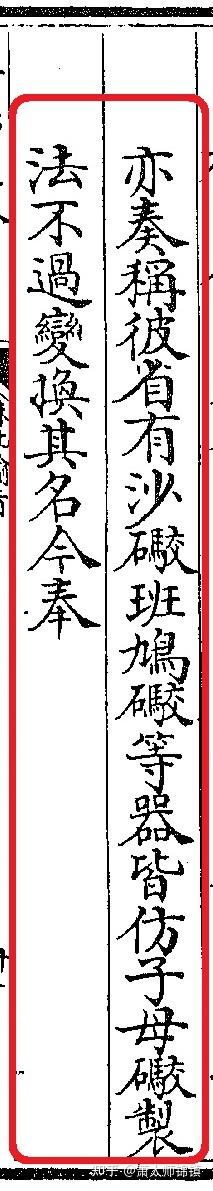 亦奏稱彼省有沙礮班鳩礮等器皆仿子母礮製
法不過變換其名今奉
知乎 @蕭太師錦鎮